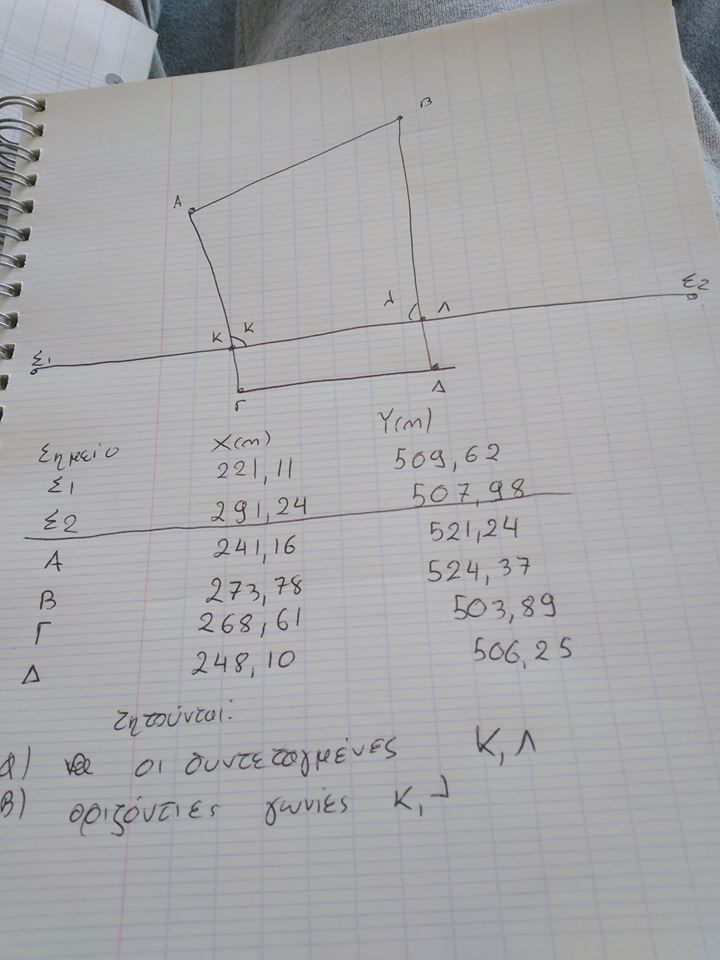 B
A
Σ2
λ Λ
K K
Σ1
Δ
Γ
Σημείο X(m) Y(m)
Σ1 221,11 509,62
Σ2 291,24 507,98
A 241,16 521,24
B 273,78 524,37
Γ 268,61 503,89
Δ 248,10 506,25
Ζητούνται:
α) οι συντεταγμένες K, Λ
β) οριζόντιες γωνίες κ, λ